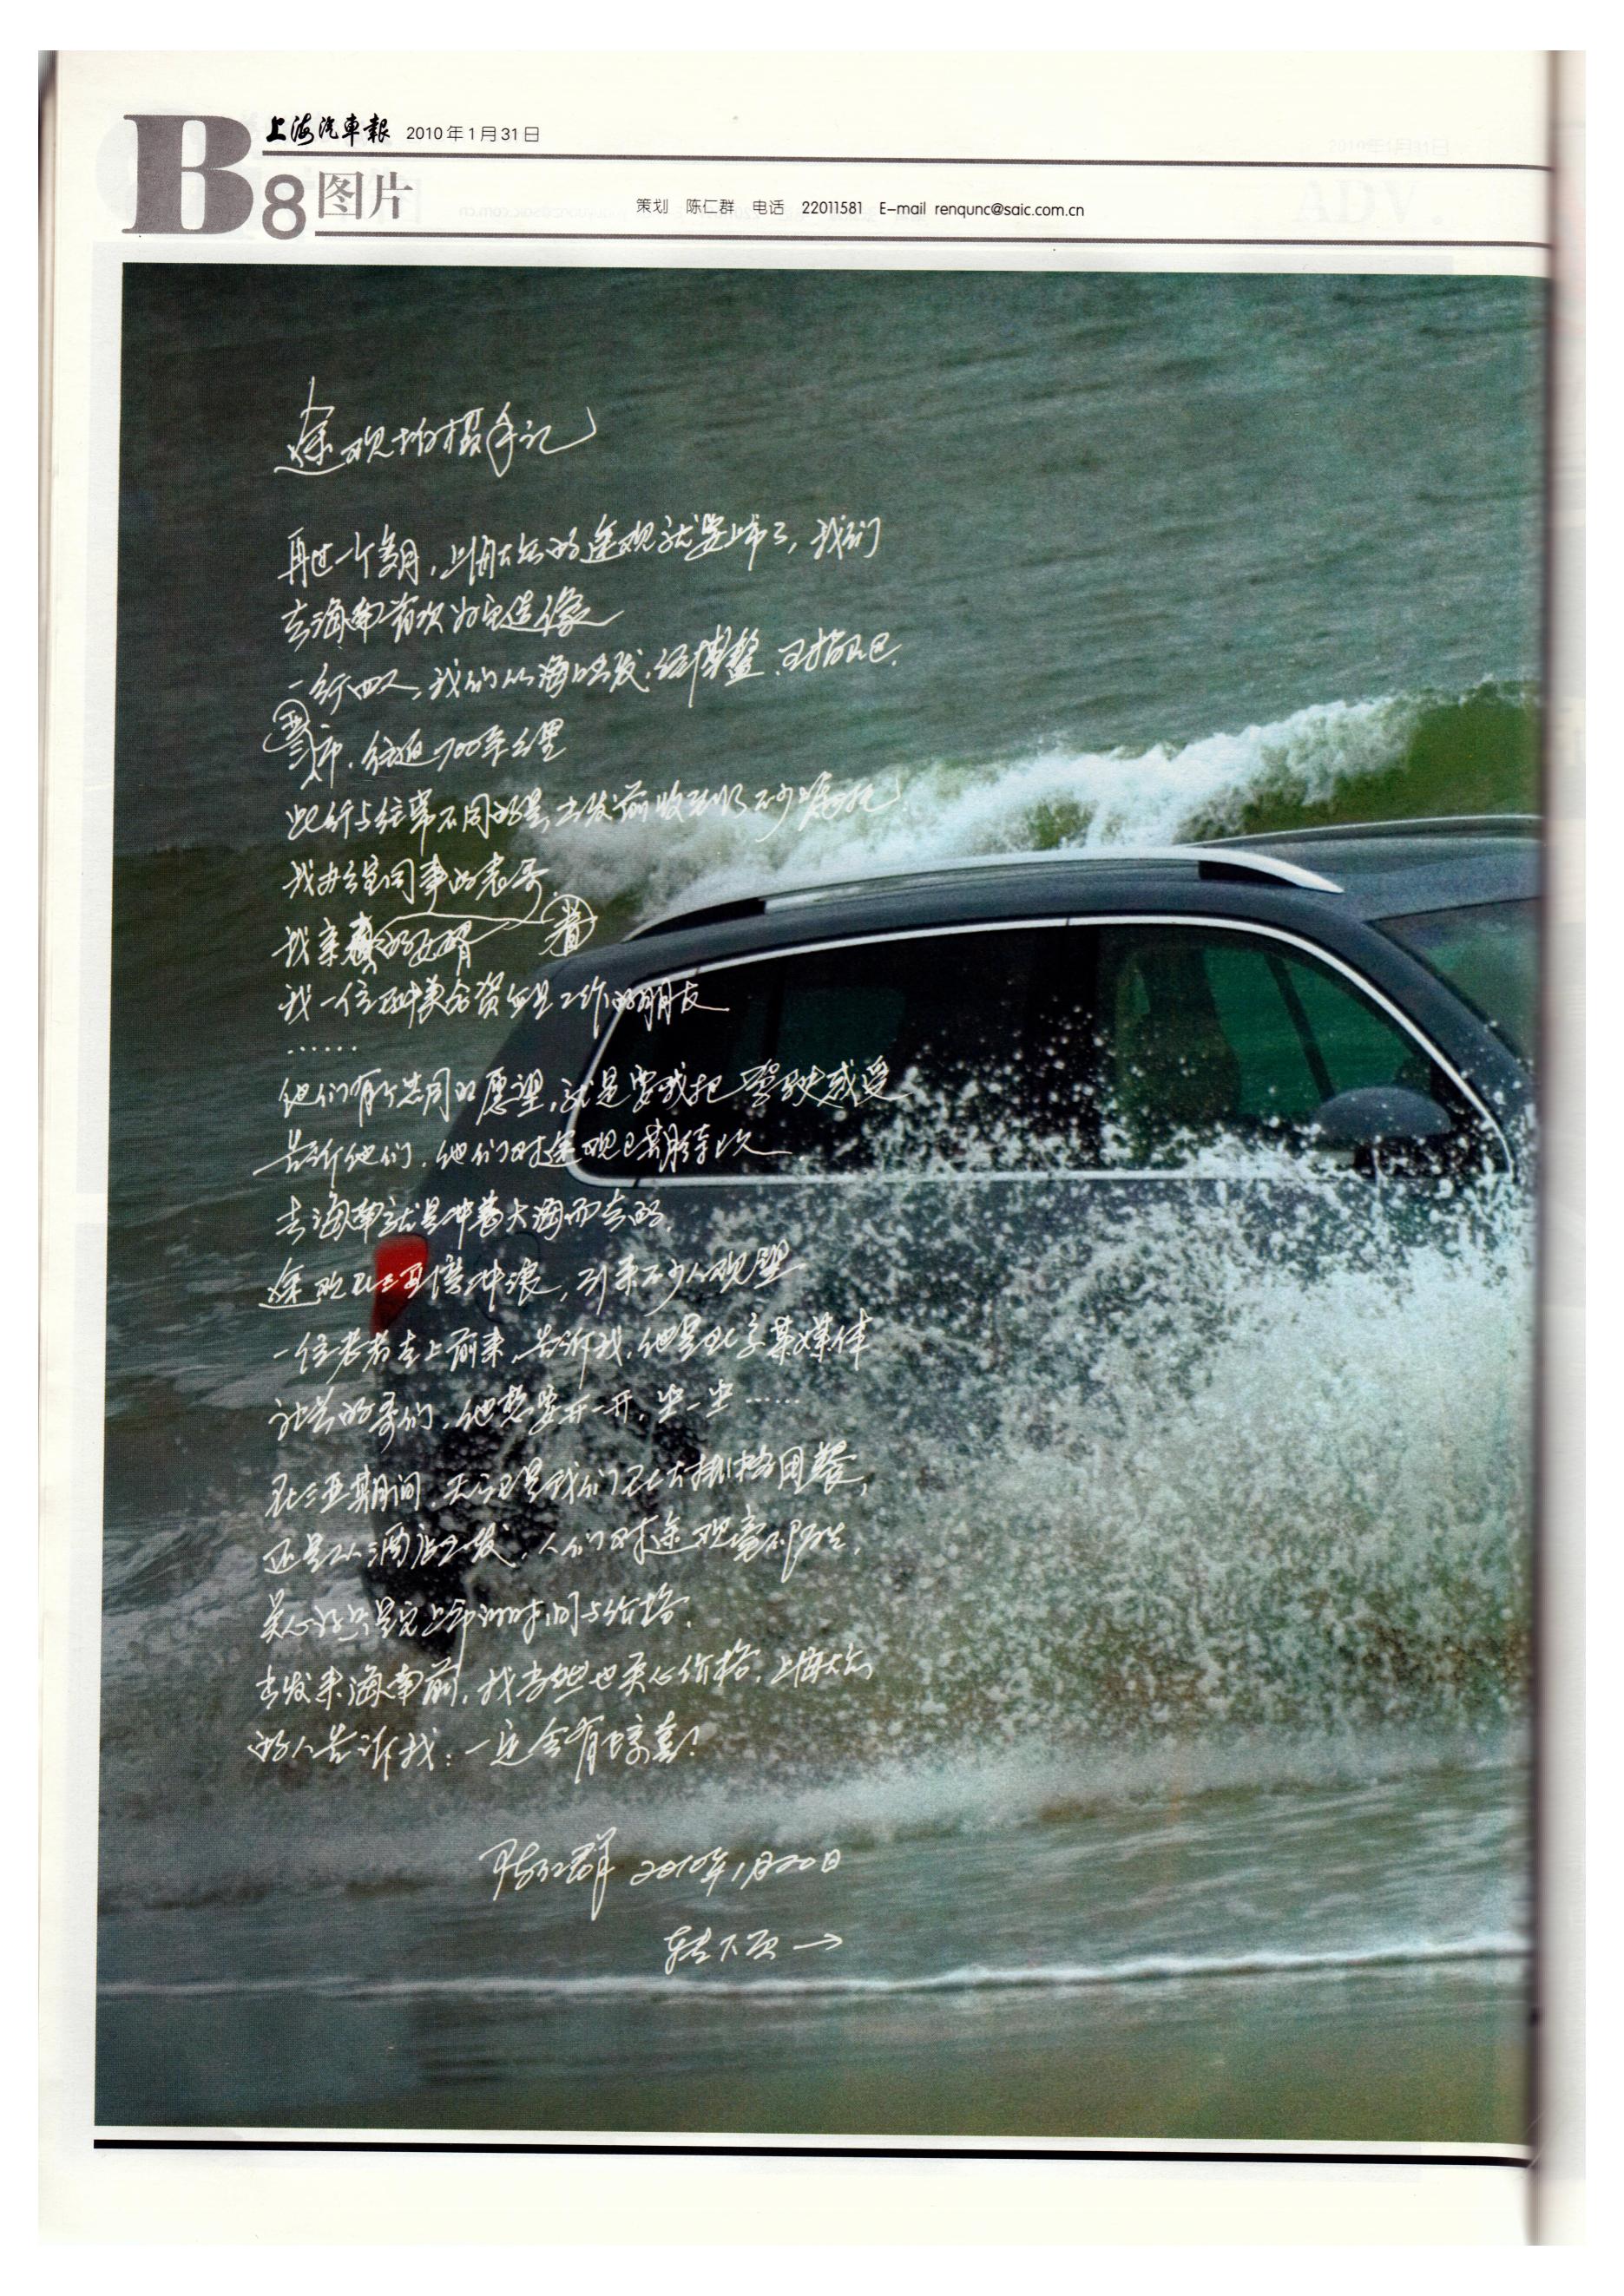 上海汽車報 2010年1月31日
B8 图片
策划 陈仁群 电话 22011581 E-mail renqunc@saic.com.cn
途观拍摄手记
再过一个多月，上海大众的途观就要上市了，我们
去海南首次为它造像
一行四人，我们从海口出发，经博鳌，
三亚市，往返700余公里
此行与往常不同的是，出发前收到了不少嘱托
我办公室同事的表哥
我亲
我一位在中美合资企业工作的朋友
……
他们有个共同的愿望，就是要我把驾驶感受
告诉他们，他们对途观已期待已久
去海南就是冲着大海而去的
途观在三亚湾冲浪，引来不少人观望
一位长者走上前来，告诉我，他是北京某媒体
社长的哥们，他想要开一开，坐一坐……
在三亚期间，无论是我们在大排档用餐，
还是从酒店出发，人们对途观毫不陌生，
关心的只是它上市的时间与价格，
出发来海南前，我当然也关心价格，上海大众
的人告诉我：一定会有惊喜！
陈仁群 2010年1月20日
转下页→